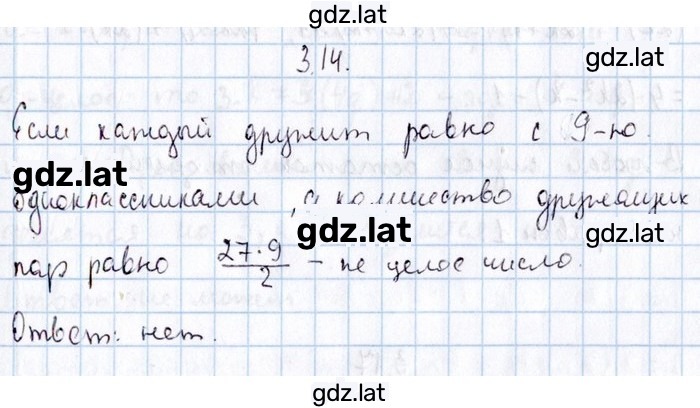 gdz.lat
gdz.lat
3.14.
Если каждый дружит равно с 9-ю
gdz.lat
одноклассниками, а количество дружащих
gdz.lat
пар равно 27·9/2 - не целое число.
Ответ: нет.
gdz.lat